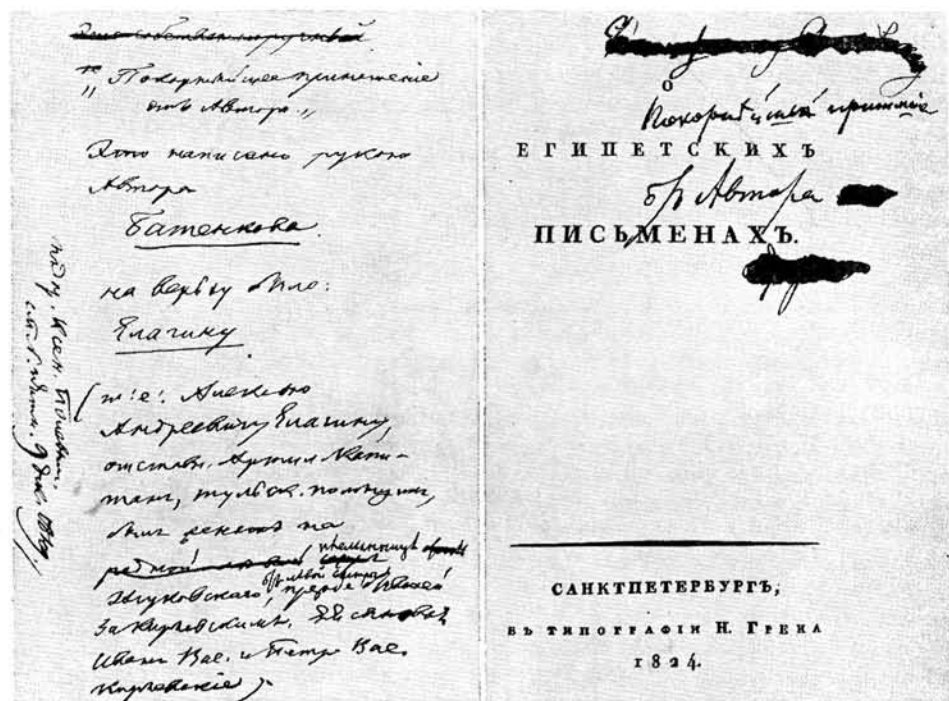 "Покорнѣйшее приношеніе
отъ Автора."
Это написано рукою
Автора
Батенкова.
на верьху было:
Елагину
(т: е: Алексѣю
Андреевичу Елагину,
отставн. Артил. Капи-
танъ, тульск. помѣщикъ,
былъ женатъ на
племянницѣ
Жуковскаго, прежде
за Кирѣевскимъ. Ея сыновья
Иванъ Вас. и Петръ Вас.
Кирѣевскіе).
О
Покорнѣйшее
ЕГИПЕТСКИХЪ
Автора
ПИСЬМЕНАХЪ.
САНКТПЕТЕРБУРГЪ,
ВЪ ТИПОГРАФІИ Н. ГРЕЧА
1824.